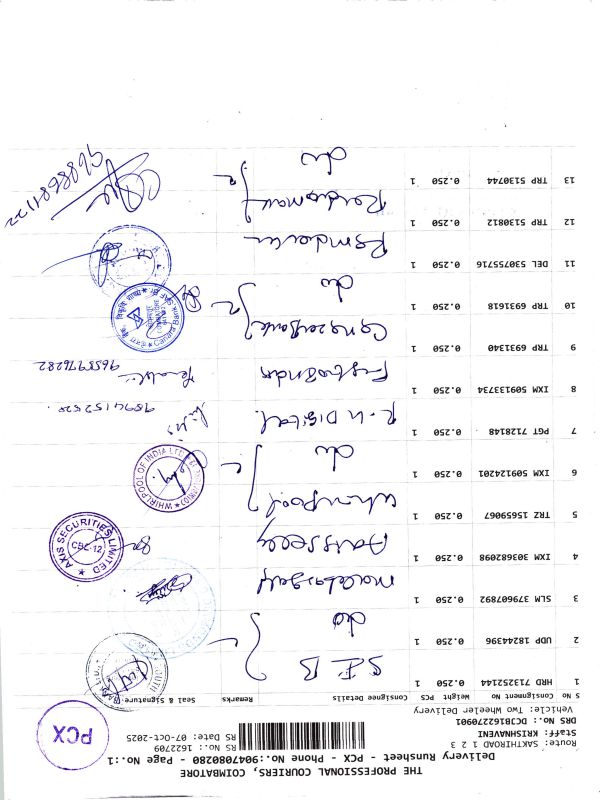 THE PROFESSIONAL COURIERS, COIMBATORE
Delivery Runsheet - PCX - Phone No.:9047080280 - Page No.:1
Route: SAKTHIROAD 1 2 3
Staff: KRISHNAVENI
DRS No.: DCB162270901
Vehicle: Two Wheeler Delivery
RS No.: 1622709
RS Date: 07-Oct-2025
PCX
S No Consignment No Weight PCS Consignee Details Remarks Seal & Signature
1 HRD 71252144 0.250 1 S I B
2 UDP 18244396 0.250 1 do
3 SLM 379607892 0.250 1
4 IXM 303682098 0.250 1
AXIS SECURITIES LIMITED
CBE-12
5 TRZ 1659067 0.250 1 Whirlpool
6 IXM 509124201 0.250 1 do
WHIRLPOOL OF INDIA LTD
7 PGT 7128148 0.250 1 R.U Digital 9894152528
8 IXM 509133734 0.250 1 9658976282
9 TRP 6931340 0.250 1 Canara Bank
10 TRP 6931618 0.250 1 do
Canara Bank
11 DEL 530755716 0.250 1
12 TRP 5130812 0.250 1
13 TRP 5130744 0.250 1 do
9688681122